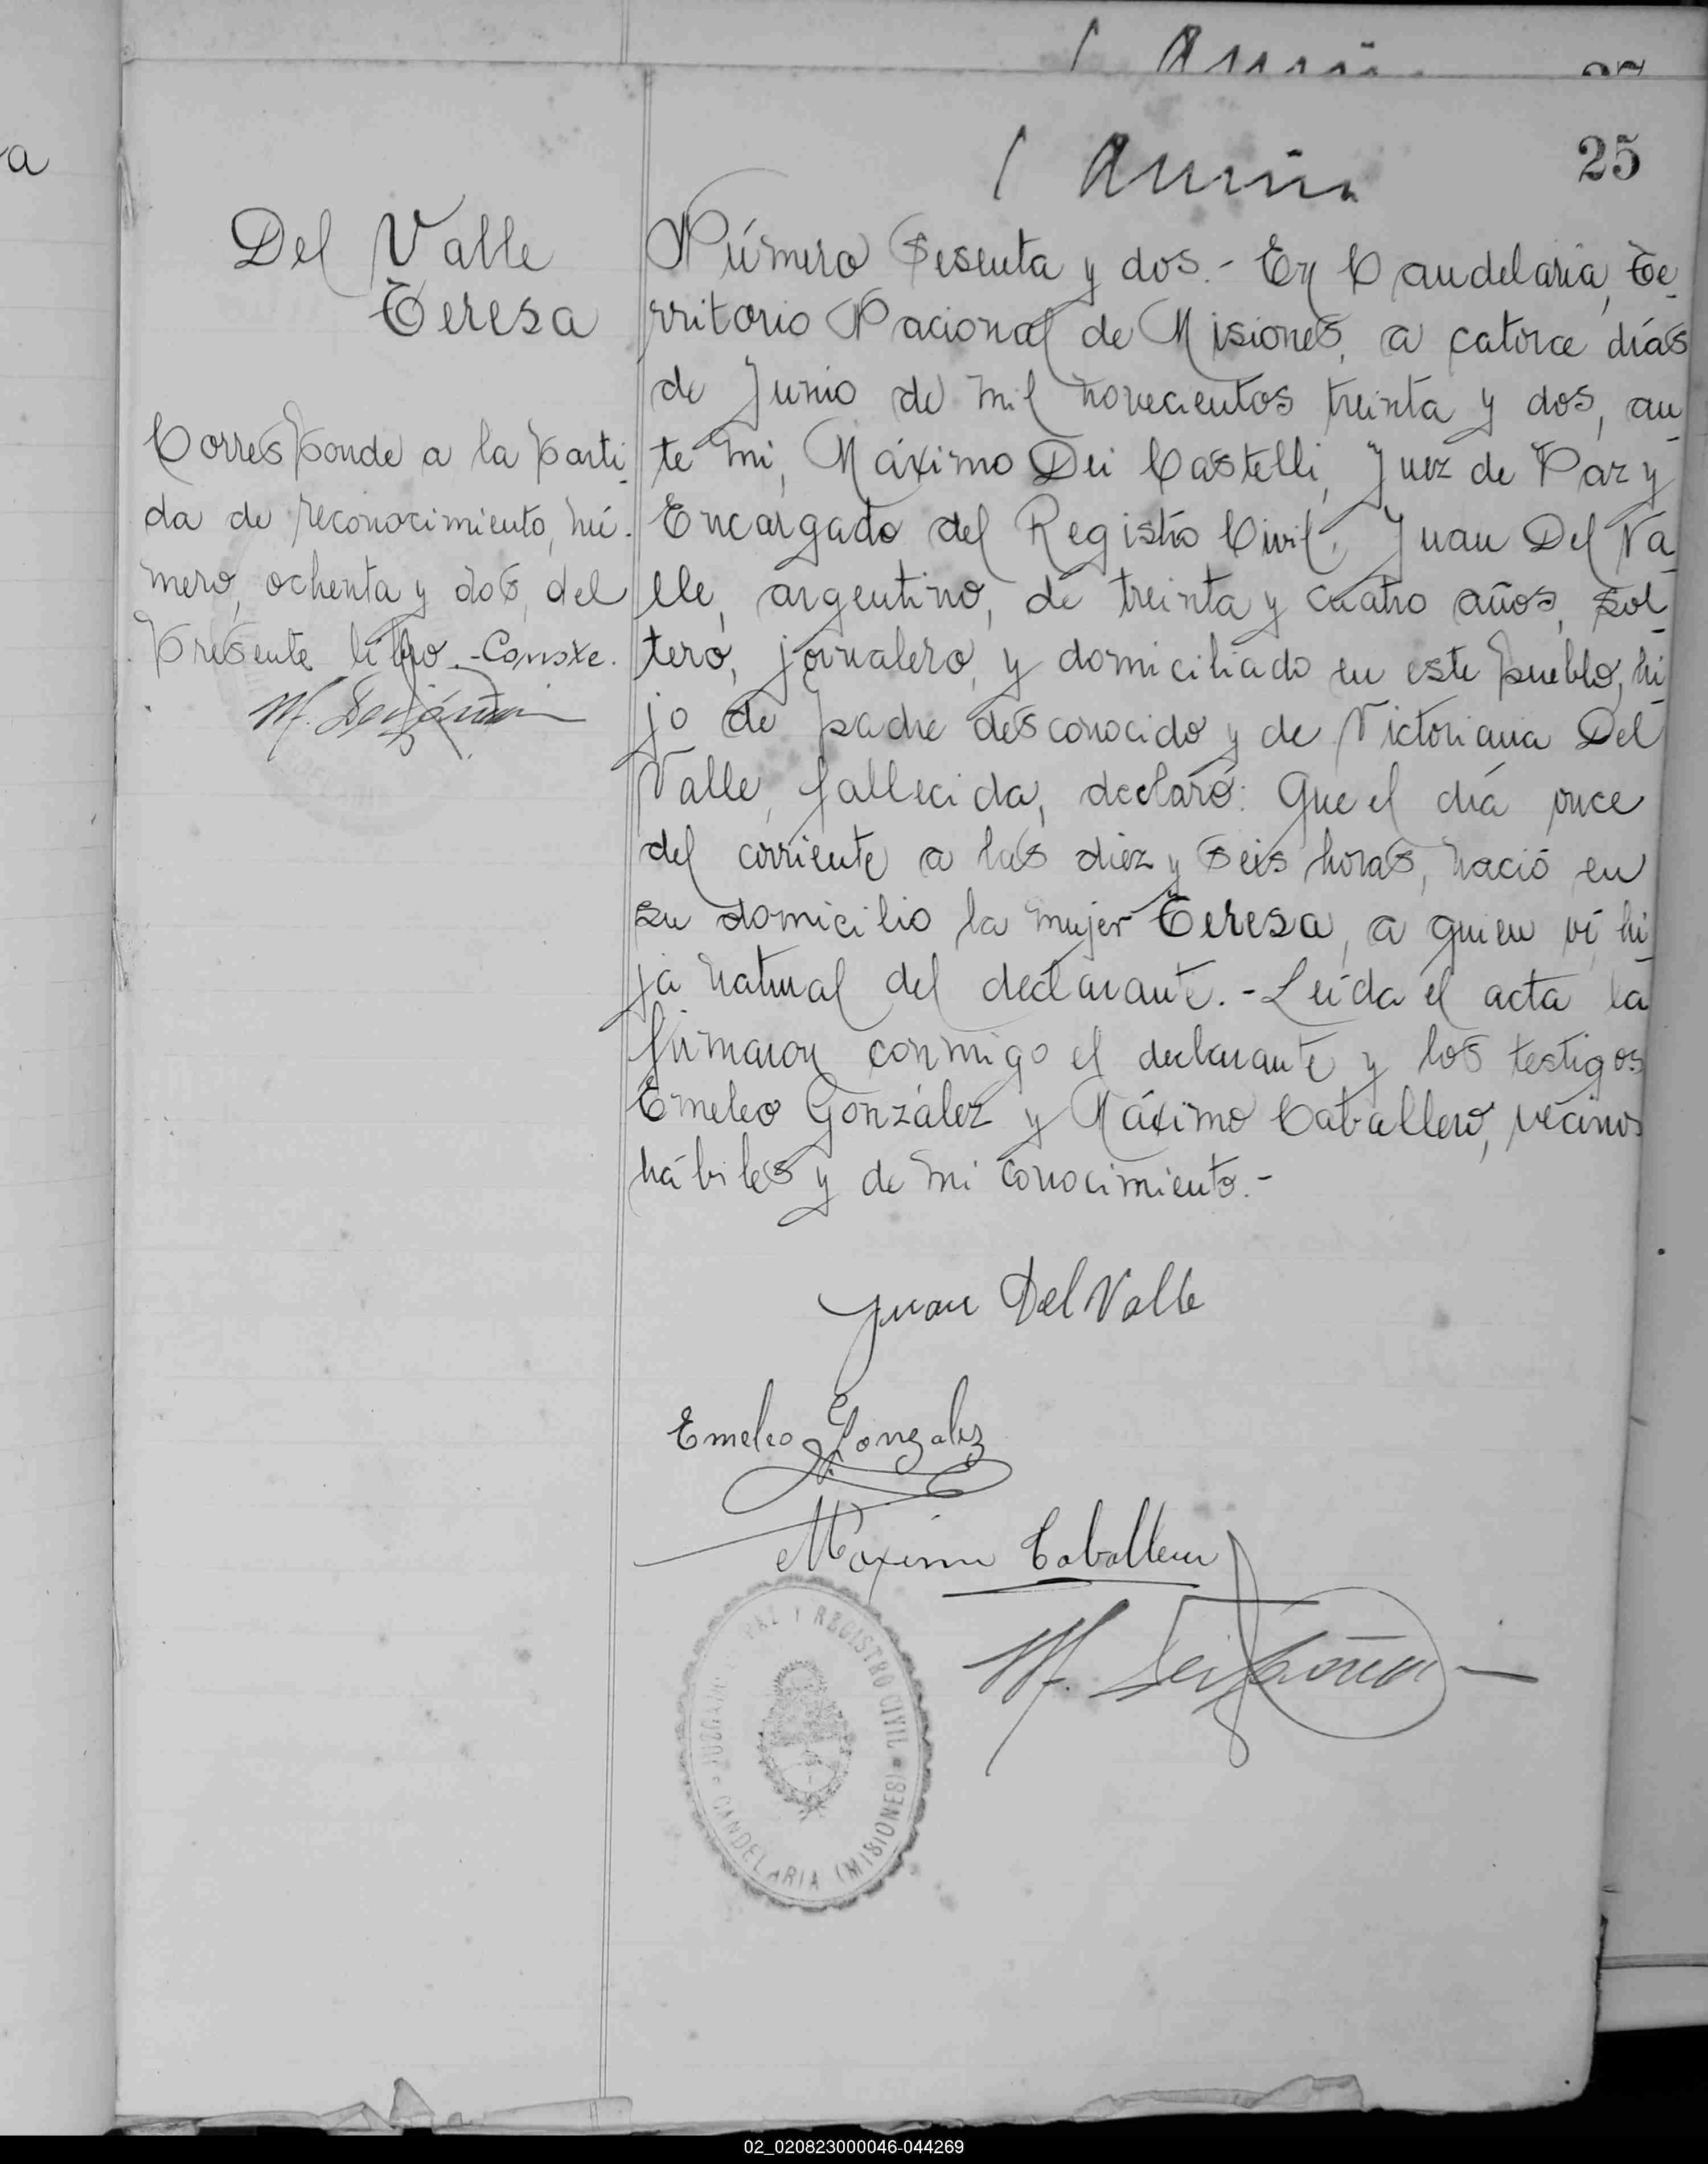 25
Del Valle
Teresa
Corresponde a la parti-
da de reconocimiento, nú-
mero, ochenta y dos, del
presente libro.-Conste.
Número Sesenta y dos.- En Candelaria, Te-
rritorio Nacional de Misiones, a catorce días
de Junio de mil novecientos treinta y dos, an-
te mi, Máximo Dei Castelli, Juez de Paz y
Encargado del Registro Civil, Juan Del Va-
lle, argentino, de treinta y cuatro años, sol-
tero, jornalero, y domiciliado en este pueblo, hi-
jo de padre desconocido y de Victoriana Del
Valle, fallecida, declaró: Que el día once
del corriente a las diez y seis horas, nació en
su domicilio la mujer Teresa, a quien ví, hi-
ja natural del declarante.-Leída el acta la
firmaron conmigo el declarante y los testigos
Emeleo González y Máximo Caballero, vecinos
hábiles y de mi conocimiento.-
Juan Del Valle
Emeleo Gonzalez
Maximo Caballero
JUZGADO DE PAZ Y REGISTRO CIVIL
CANDELARIA (MISIONES)
02_020823000046-044269